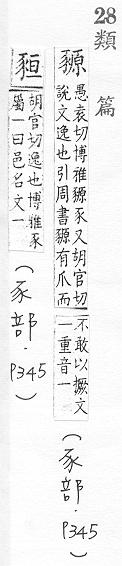 28
類篇
豲
愚袁切博雅豲豕又胡官切
説文逸也引周書豲有爪而
不敢以撅文
一重音一
(豕部．P345)
胡官切逸也博雅豕
屬一曰邑名文一
(豕部．P345)